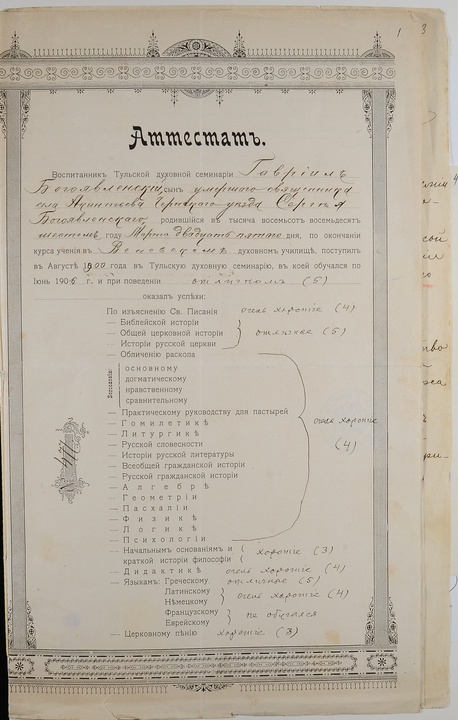 1 3
Аттестатъ.
Воспитанникъ Тульской духовной семинаріи Гавріилъ
Богоявленскій, сынъ умершаго священника
села Чернскаго уѣзда Сергѣя
Богоявленскаго, родившійся въ тысяча восемьсотъ восемьдесятъ
шестомъ году Марта двадцать пятаго дня, по окончаніи
курса ученія въ Веневскомъ духовномъ училищѣ, поступилъ
въ Августѣ 1900 года въ Тульскую духовную семинарію, въ коей обучался по
Іюнь 1906 г. и при поведеніи отличномъ (5)
оказалъ успѣхи:
По изъясненію Св. Писанія очень хорошіе (4)
— Библейской исторіи
— Общей церковной исторіи отличные (5)
— Исторіи русской церкви
— Обличенію раскола
Богословію:
основному
догматическому
нравственному
сравнительному
— Практическому руководству для пастырей
— Гомилетикѣ очень хорошіе
— Литургикѣ
— Русской словесности (4)
— Исторіи русской литературы
— Всеобщей гражданской исторіи
— Русской гражданской исторіи
— Алгебрѣ
— Геометріи
— Пасхаліи
— Физикѣ
— Логикѣ
— Психологіи
— Начальнымъ основаніямъ и
краткой исторіи философіи хорошіе (3)
— Дидактикѣ очень хорошіе (4)
— Языкамъ: Греческому отличные (5)
Латинскому
Нѣмецкому очень хорошіе (4)
Французскому
Еврейскому не обучался
— Церковному пѣнію хорошіе (3)
№ 477